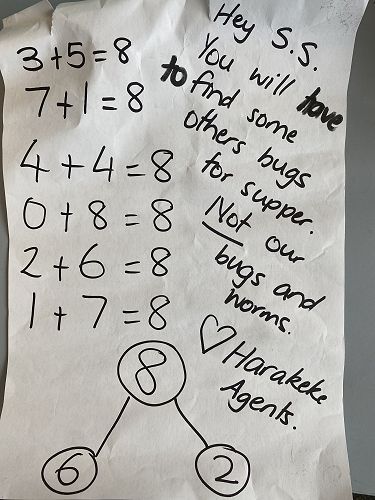 3+5=8
7+1=8
4+4=8
0+8=8
2+6=8
1+7=8
8
6 2
Hey S.S.
You will have
to find some
others bugs
for supper.
Not our
bugs and
worms.
♡ Harakeke
Agents.